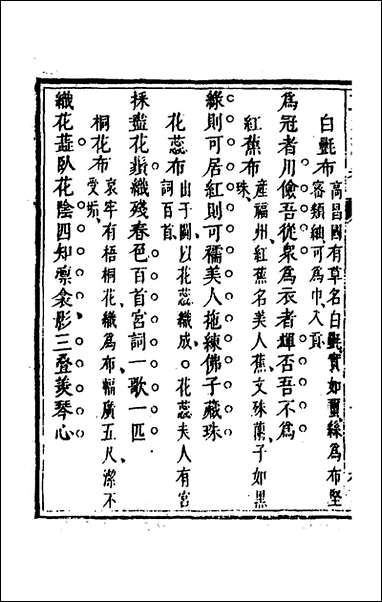 白㲲布
高昌國有草名白㲲實如璽絲爲布堅
密類紬可爲巾入貢
爲冠者用儉吾從衆爲衣者煇否吾不爲
紅蕉布
產福州紅蕉名美人蕉文殊蘭子如黑
珠
綠則可居紅則可襦美人拖練佛子藏珠
花蕊布
出于闐以花蕊織成○花蕊夫人有宮
詞百首
採盡花鬚織殘春色百首宮詞一歌一匹
桐花布
哀牢有梧桐花織爲布幅廣五尺潔不
受垢
織花藉臥花陰四知凛衾影三叠羨琴心